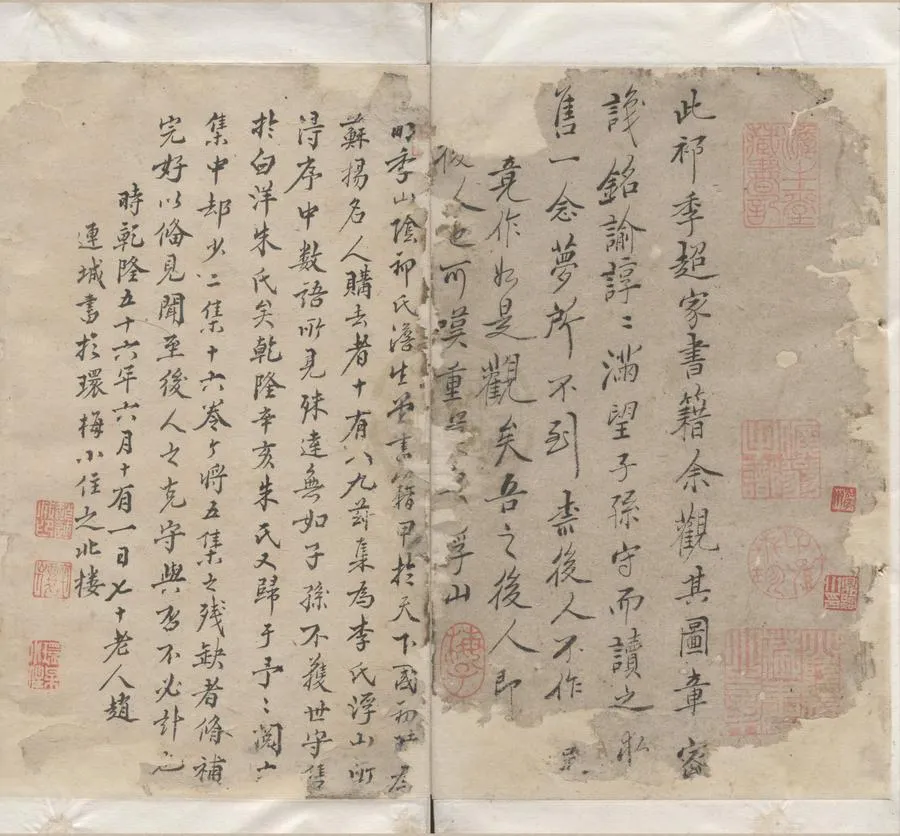 澹生堂藏書記
此祁季超家書籍余觀其圖章密
銘諭諄〻滿望子孫守而讀之
售一念夢所不到柰後人不作
竟作如是觀矣吾之後人即
後人也可嘆重 浮山
明季山陰祁氏澹生堂書籍甲於天下國初 為
蘇揚名人購去者十有八九茲集為李氏浮山所
得序中数語所見殊達無如子孫不獲世守售
於白洋朱氏矣乾隆辛亥朱氏又歸于予〻閱
集中却少二集十六卷今將五集之残缺者修補
完好以備見聞至後人之克守與否不必計也
時乾隆五十六年六月十有一日七十老人趙
連城書於環梅小住之北楼